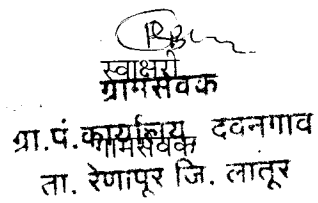 स्वाक्षरी
ग्रामसेवक
ग्रा.पं.कार्यालय दवनगाव
ग्रामसेवक
ता. रेणापूर जि. लातूर